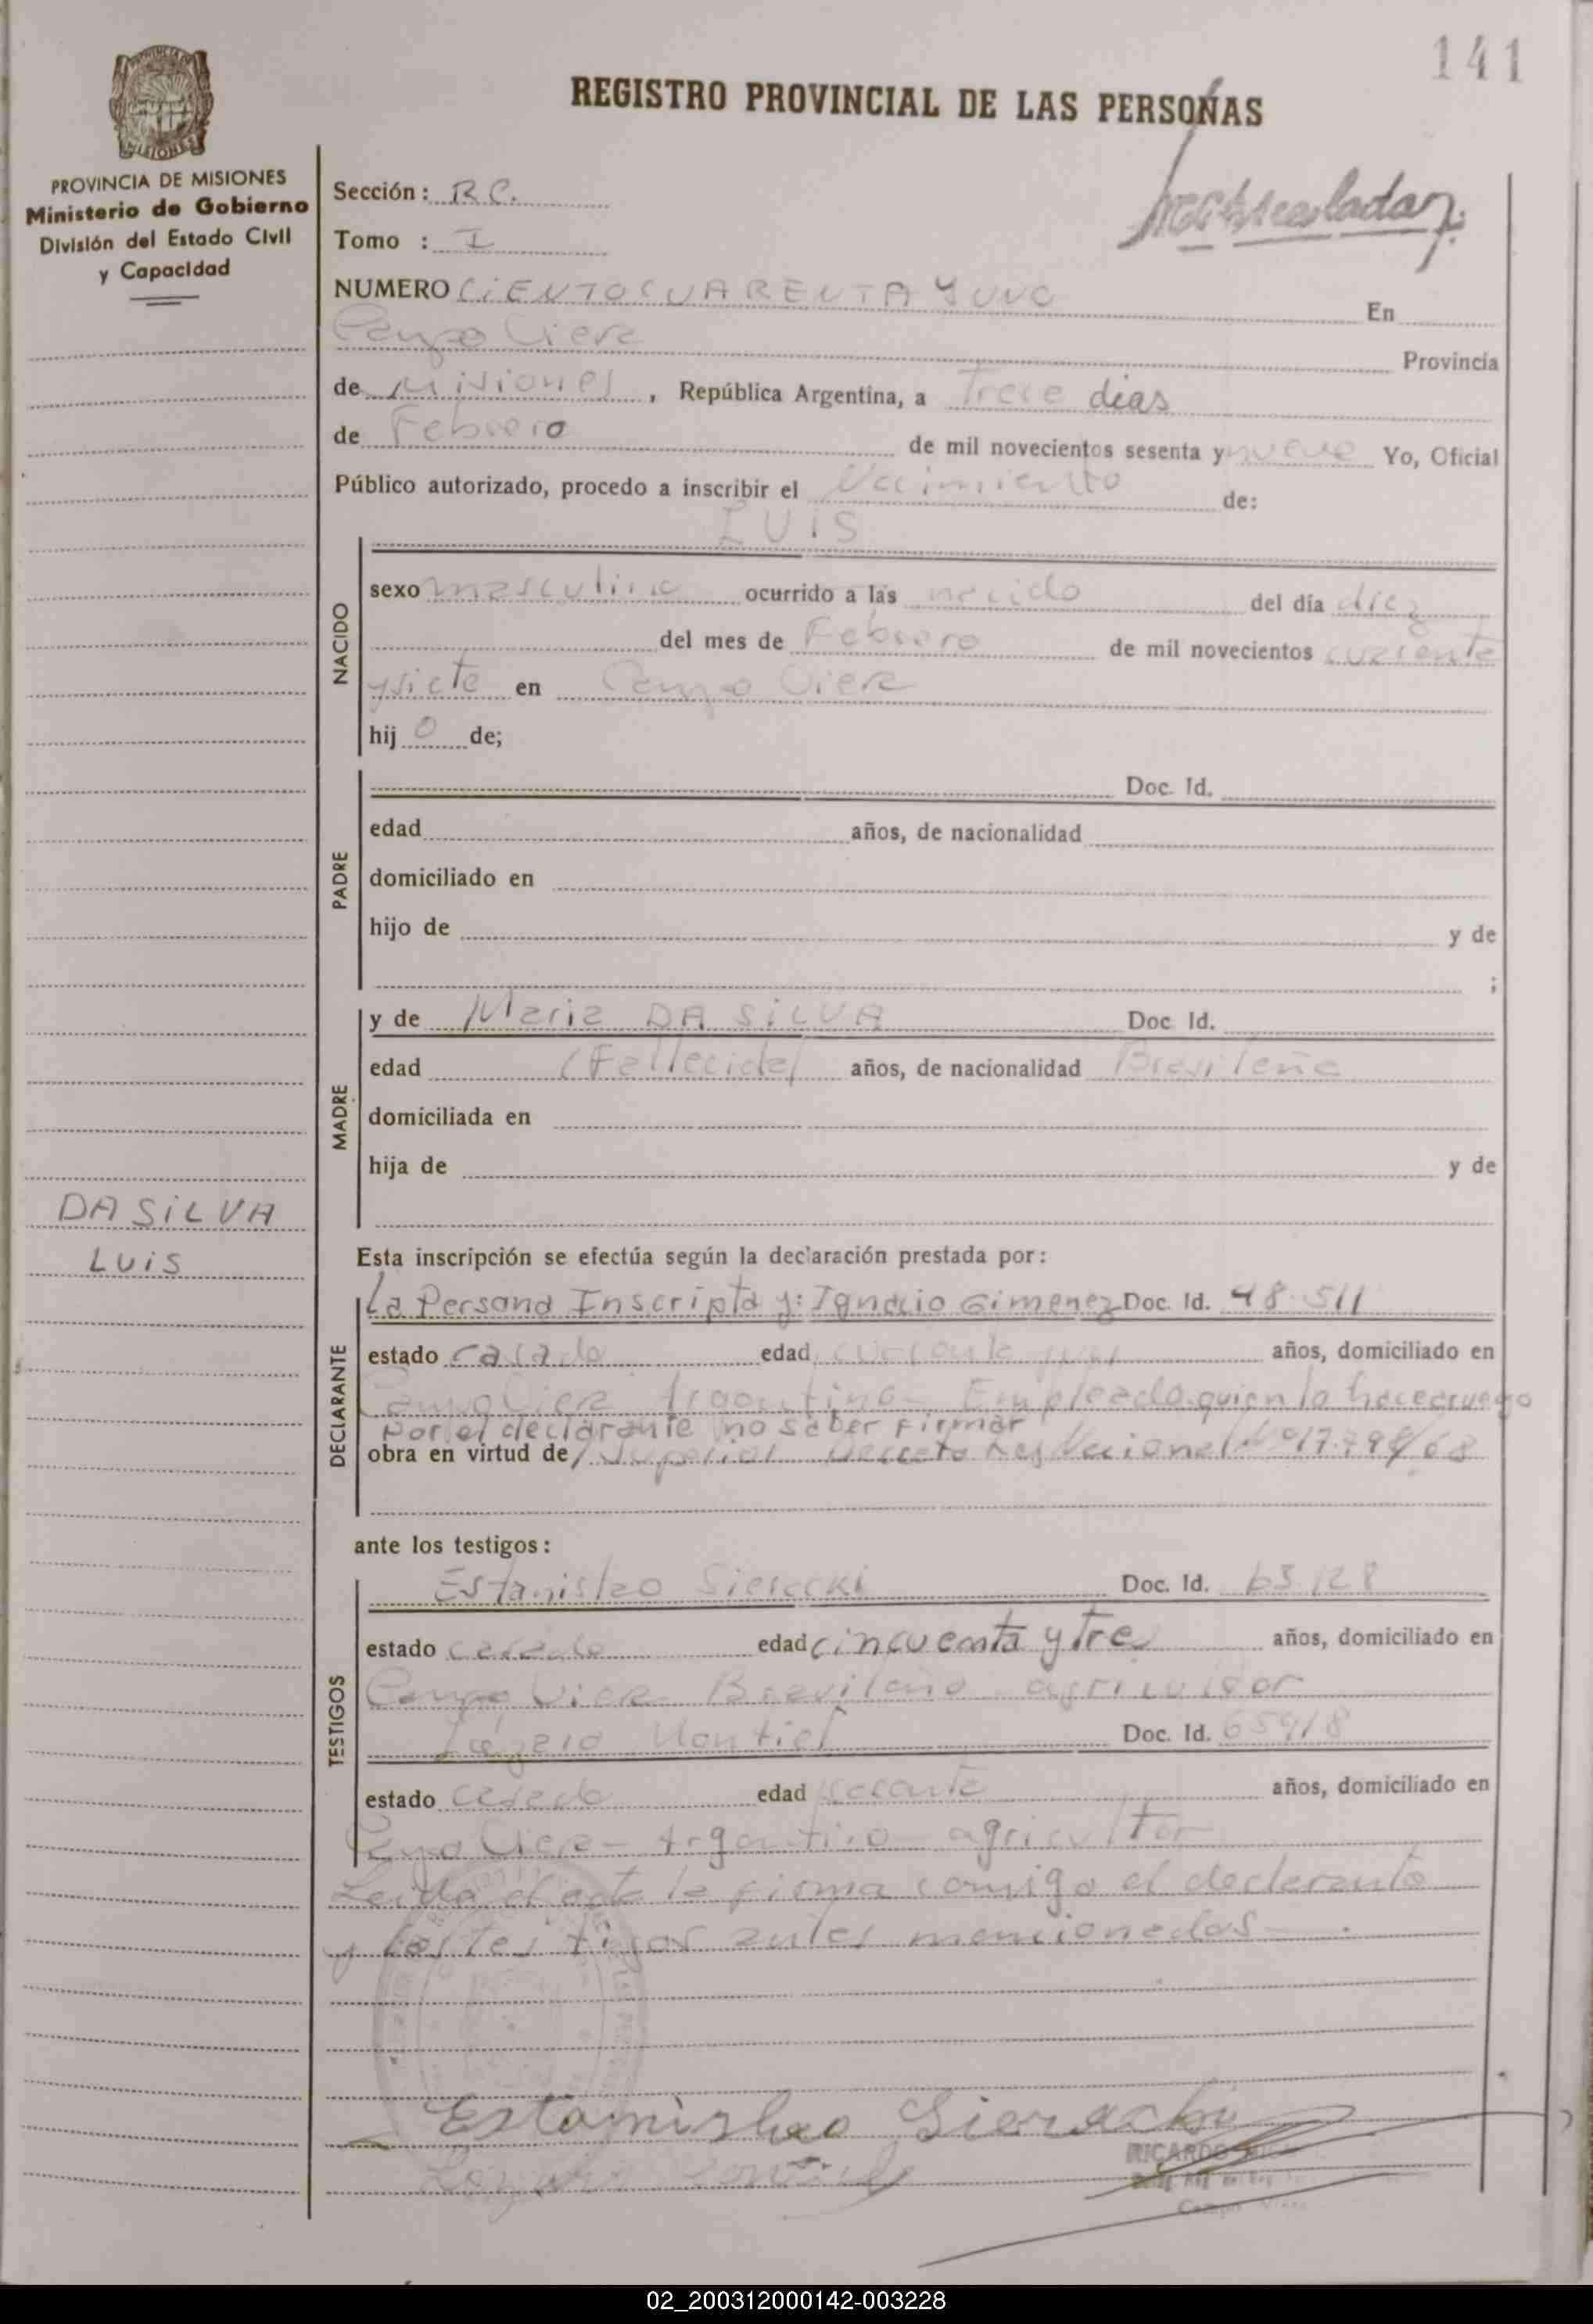 141
REGISTRO PROVINCIAL DE LAS PERSONAS
PROVINCIA DE MISIONES
Ministerio de Gobierno
División del Estado Civil
y Capacidad
Sección: R.C.
Tomo : I
NUMERO CIENTO CUARENTA Y UNO En
Campo Viera Provincia
de Misiones, República Argentina, a Trece dias
de Febrero de mil novecientos sesenta y nueve Yo, Oficial
Público autorizado, procedo a inscribir el Nacimiento de:
LUIS
NACIDO
sexo masculino ocurrido a las nacido del día diez
del mes de Febrero de mil novecientos cuarenta
y siete en Campo Viera
hij o de;
PADRE
Doc. Id.
edad años, de nacionalidad
domiciliado en
hijo de y de
;
MADRE
y de Maria DA SILVA Doc Id.
edad (Fallecida) años, de nacionalidad Brasileña
domiciliada en
hija de y de
DA SILVA
LUIS
Esta inscripción se efectúa según la declaración prestada por:
DECLARANTE
La Persona Inscripta y: Ignacio Gimenez Doc. Id. 48.511
estado casado edad cuarenta años, domiciliado en
Campo Viera Argentino - Empleado quien lo hace a ruego
por el declarante no saber firmar
obra en virtud de Superior Decreto Ley Nacional Nº 17.798/68
ante los testigos:
TESTIGOS
Estanislao Sieracki Doc. Id. 63.128
estado casado edad cincuenta y tre años, domiciliado en
Campo Viera Brasileño agricultor
Lázaro Montiel Doc. Id. 65918
estado casado edad años, domiciliado en
Campo Viera - Argentino agricultor
Leida el acta la firma conmigo el declarante
y los testigos antes mencionados
Estanislao Sieracki
RICARDO
Campo Viera
02_200312000142-003228